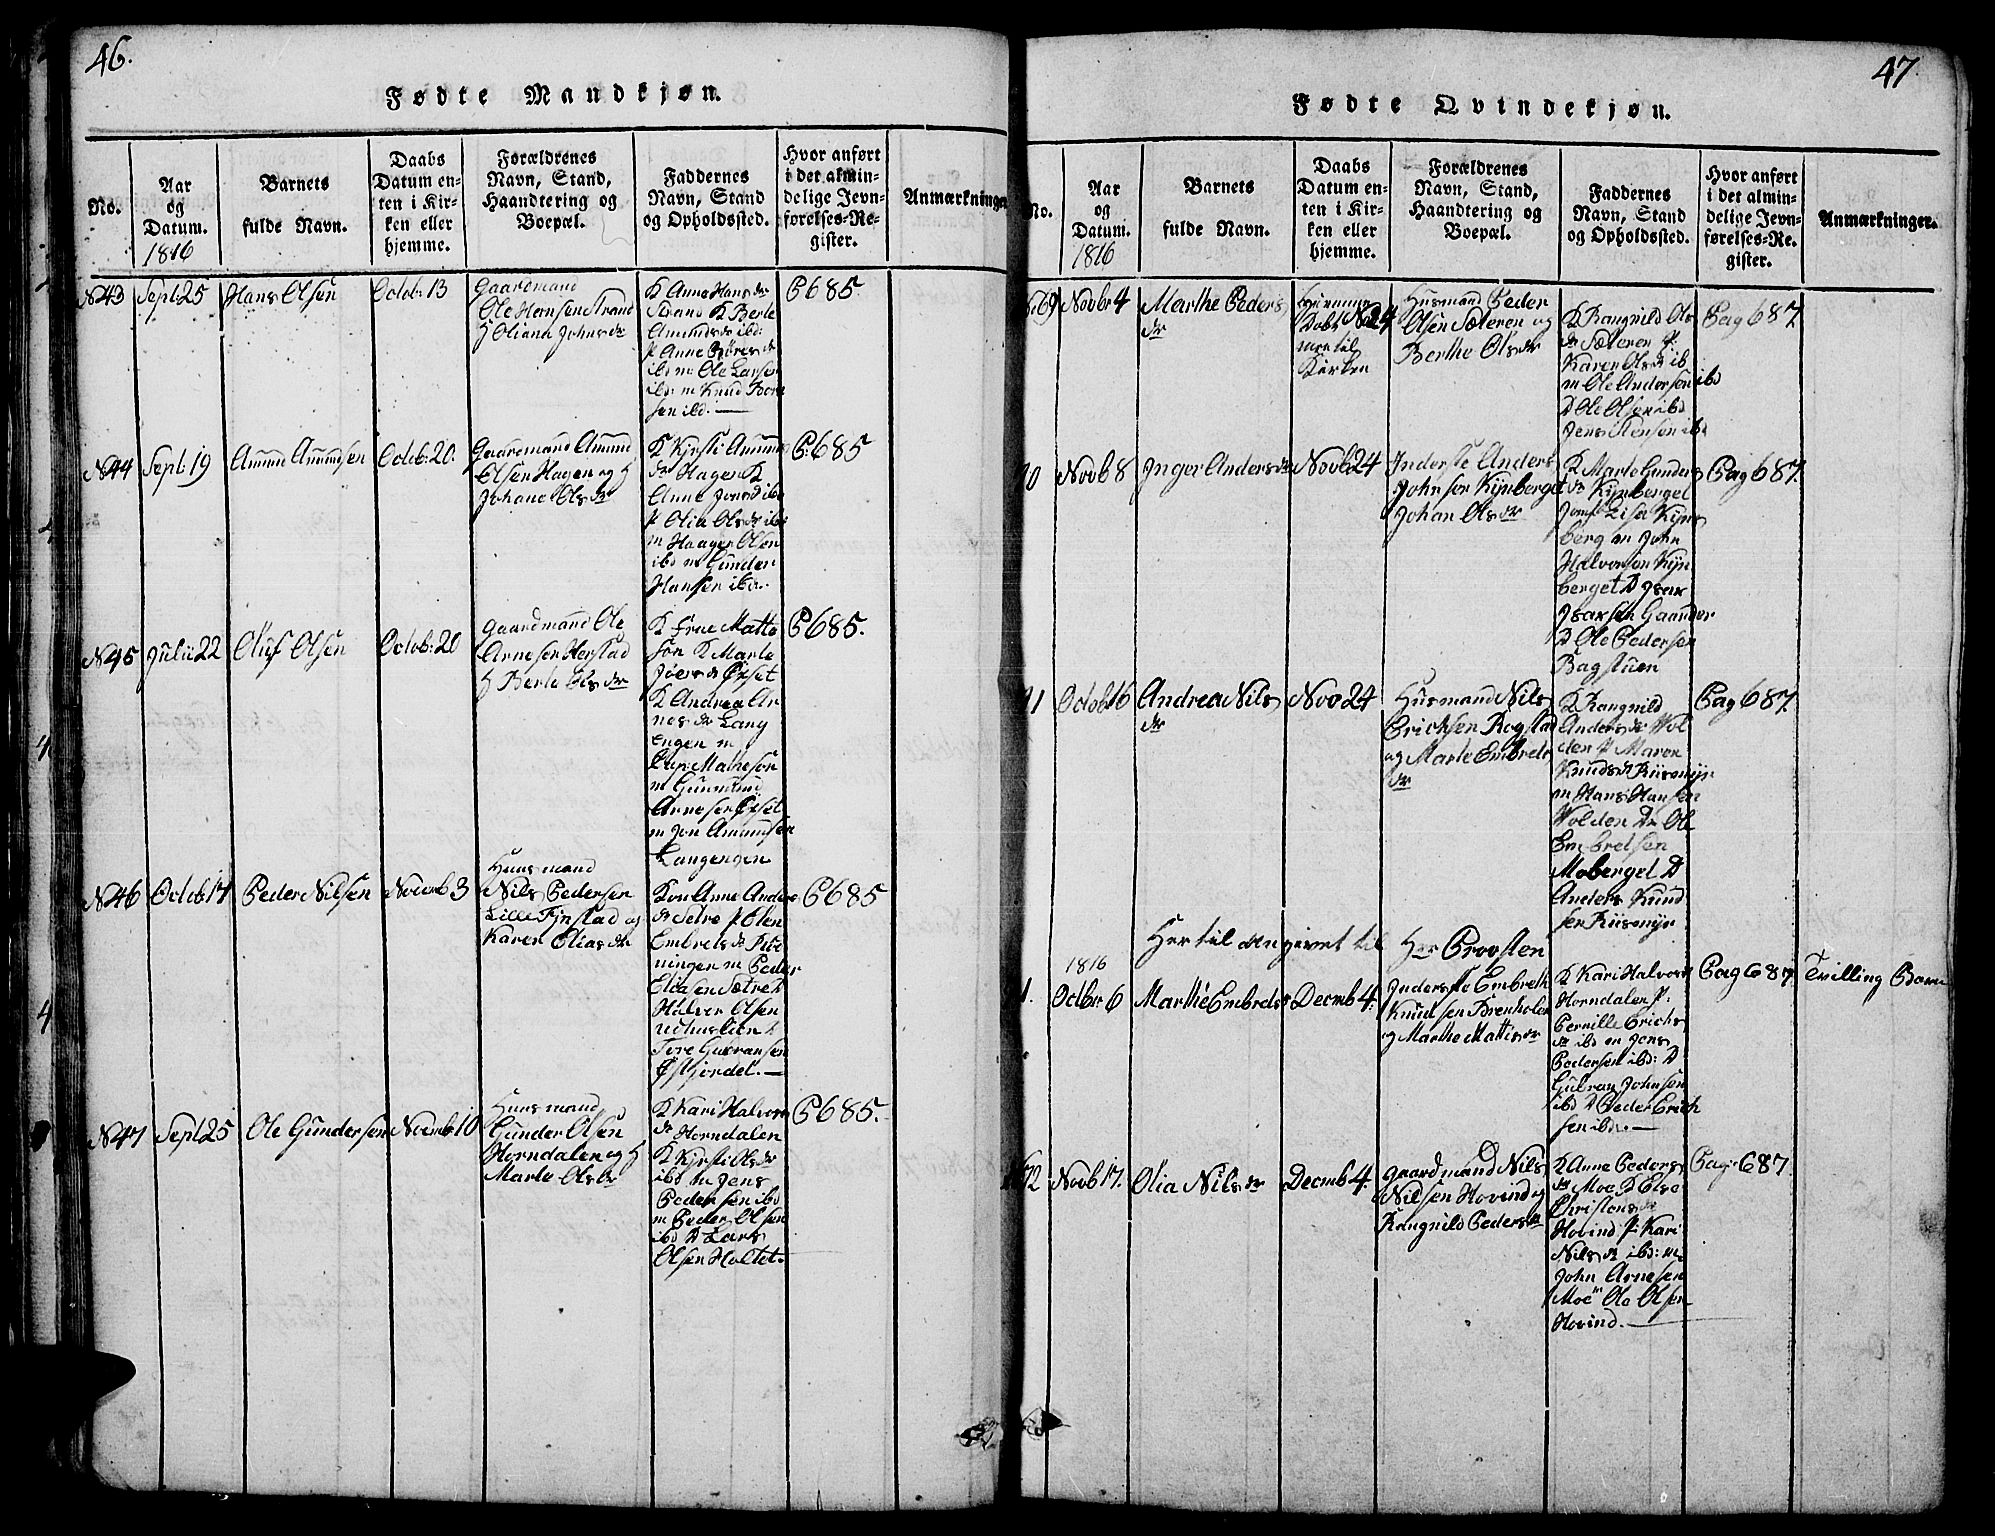 46.
Fødte Mandkjøn.
No.
Aar
og
Datum.
1816
Barnets
fulde Navn.
Daabs
Datum en-
ten i Kir-
ken eller
hjemme.
Forældrenes
Navn, Stand,
Haandtering og
Boepæl.
Faddernes
Navn, Stand
og Opholdssted.
Hvor anført
i det almin-
delige Jevn-
førelses-Re-
gister.
Anmærkninger
N43
Sept: 25
Hans Olsen
Octob: 13
Gaardmand
Ole Hansen Strand
H Oliana Johnsdr
K Anne Hansdr
Strand K Berte
Amundsdr ibd:
P Anne
ibd m Ole Larsen
ibd: m Knud
sen ibd.
P685.
N44
Sept: 19
Amund Amundsen
Octob: 20.
Gaardmand Amund
Olsen Hagen og H
Johane Olsdr
K Kjrsti Amunds
dr Hagen K
Anne Jonsd ibd
P Olia Olsdr ibd
m Haagen Olsen
ibd m Gunder
Hansen ibd.
P:685
N45
Julii 22
Oluf Olsen
Octob: 20
Gaardmand Ole
Arnesen Herstad
H Berte Olsdr
K Frue Matte
son K Marte
K Andrea Ar
nesdr Lang
engen m
m Gunmund
Arnesen
m Jon Amundsen
Langengen
P685.
N46
Octob 14
Peder Nilsen
Novemb 3
Huusmand
Nils Pedersen
Lille Fjnstad og
Karen Eliasdr
Kon Anne Anders
dr Setre P Elen
Embretsdr
ningen m Peder
Eliasen Sætre D
Halvor Olsen
Tore Gulransen
P685
N47
Sept 25
Ole Gundersen
Novemb 10
Huusmand
Gunder Olsen
Horndalen og H
Marte Olsdr
K Kari Halvors
dr Horndalen
K Kjrsti Olsdr
ibd m Jens
Pedersen ibd
m Peder Olsen
ibd D Lars
Olsen Holtet.
P685.
47
Fødte Qvindekjøn.
No.
Aar
og
Datum.
1816
Barnets
fulde Navn.
Daabs
Datum en-
ten i Kir-
ken eller
hjemme.
Forældrenes
Navn, Stand,
Haandtering og
Boepæl.
Faddernes
Navn, Stand
og Opholdssted.
Hvor anført
i det almin-
delige Jevn-
førelses-Re-
gister.
Anmærkninger.
69
Novbr 4
Marthe Peders
dr
Hjemme
Døbt Nov 24
til
Kirken
Husmand Peder
Olsen Sæteren og
Berthe Olsdr
K Rangnild Ols
dr Sæteren P:
Karen Olsdr ib
m Ole Andersen ibd
D Ole Olsen ibd
Jens Stensen ibd
Pag 687.
70
Novb 8
Inger Andersdr
Novb 24
Inderste Anders
Johnsen Kynberget
Johan Olsdr
K Marte Gunders
dr Kynberget
Jomf Lise Kyns
berg m John
Halvorsen Kyn
berget D Isax
Isaxsen Gaarder
D Ole Pedersen
Bagstuen
Pag 687.
71
Octob 16
Andrea Nils
dr
Nov 24
Husmand Nils
Ericksen Rogstad
og Marte Embrets
dr
K Rangnild
Andersdr Vol
den P Maren
Knudsdr Riismyr
m Hans Hansen
Volden D Ole
Embretsen
Moberget D
Anders Knud
sen Riismyr
Pag 687.
Her til angivet til
Hr Provsten
1816
Octber 6
Marthe Embretsdr
Decmb 4.
Inderste Embreth
Knudsen Brenholen
og Marthe Mattisdr
K Kari Halvorsd
Horndalen P.
Pernille Erichs
dr ibd m Jens
Pedersen ibd: D
Gulran Johnsen
ibd D Peder Erich
sen ibd.
Pag 687.
Tvilling Barn
N72
Novb 17.
Olia Nilsdr
Decmb 4.
Gaardmand Nils
Nilsen Hovind og
Rangnild Pedersdr
K Anne Peders
dr Moe K Else
Christensdr
Hovind P. Kari
Nilsdr ibd: m.
John Arnesen
Moe m Ole Olsen
Hovind.
Pag: 687.